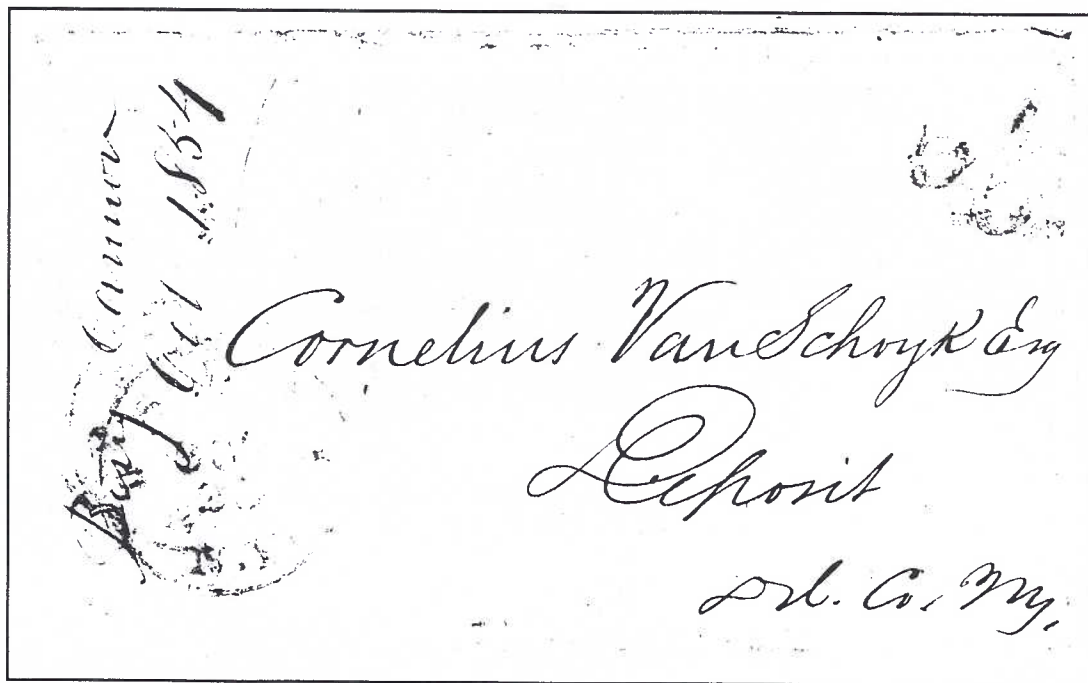 Oct 1854
Cornelius VanSchoyk Esq
Deposit
Del. Co, Ny,